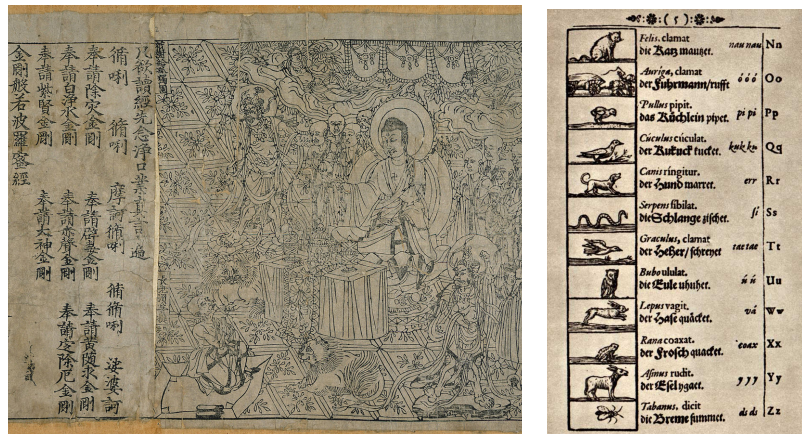 凡欲讀經先念淨口業真言一遍
脩唎 脩唎 摩訶脩唎 脩脩唎 娑婆訶
奉請除灾金剛 奉請辟毒金剛 奉請黃隨求金剛
奉請白淨水金剛 奉請赤聲金剛 奉請定除厄金剛
奉請紫賢金剛 奉請大神金剛
金剛般若波羅蜜經
( 5 )
Felis. clamat
die Katz mautzet. nau nau Nn
Auriga, clamat
der Fuhrmann/rufft ó ó ó Oo
Pullus pipit.
das Küchlein pipet. pi pi Pp
Cúculus cúculat.
der Kukuck kucket. kuk ku Qq
Canis ringitur.
der Hund marret. err Rr
Serpens sibilat.
die Schlange zischet. si Ss
Graculus, clamat
der Heher/ schreyet tae tae Tt
Bubo ululat.
die Eule uhuhet. ú ú Uu
Lepus vagit.
der Hase quäcket. vá Ww
Rana coaxat.
der Frosch quacket. coax Xx
Asinus rudit.
der Esel ygaet. y y y Yy
Tabanus. dicit
die Breme summet. ds ds Zz